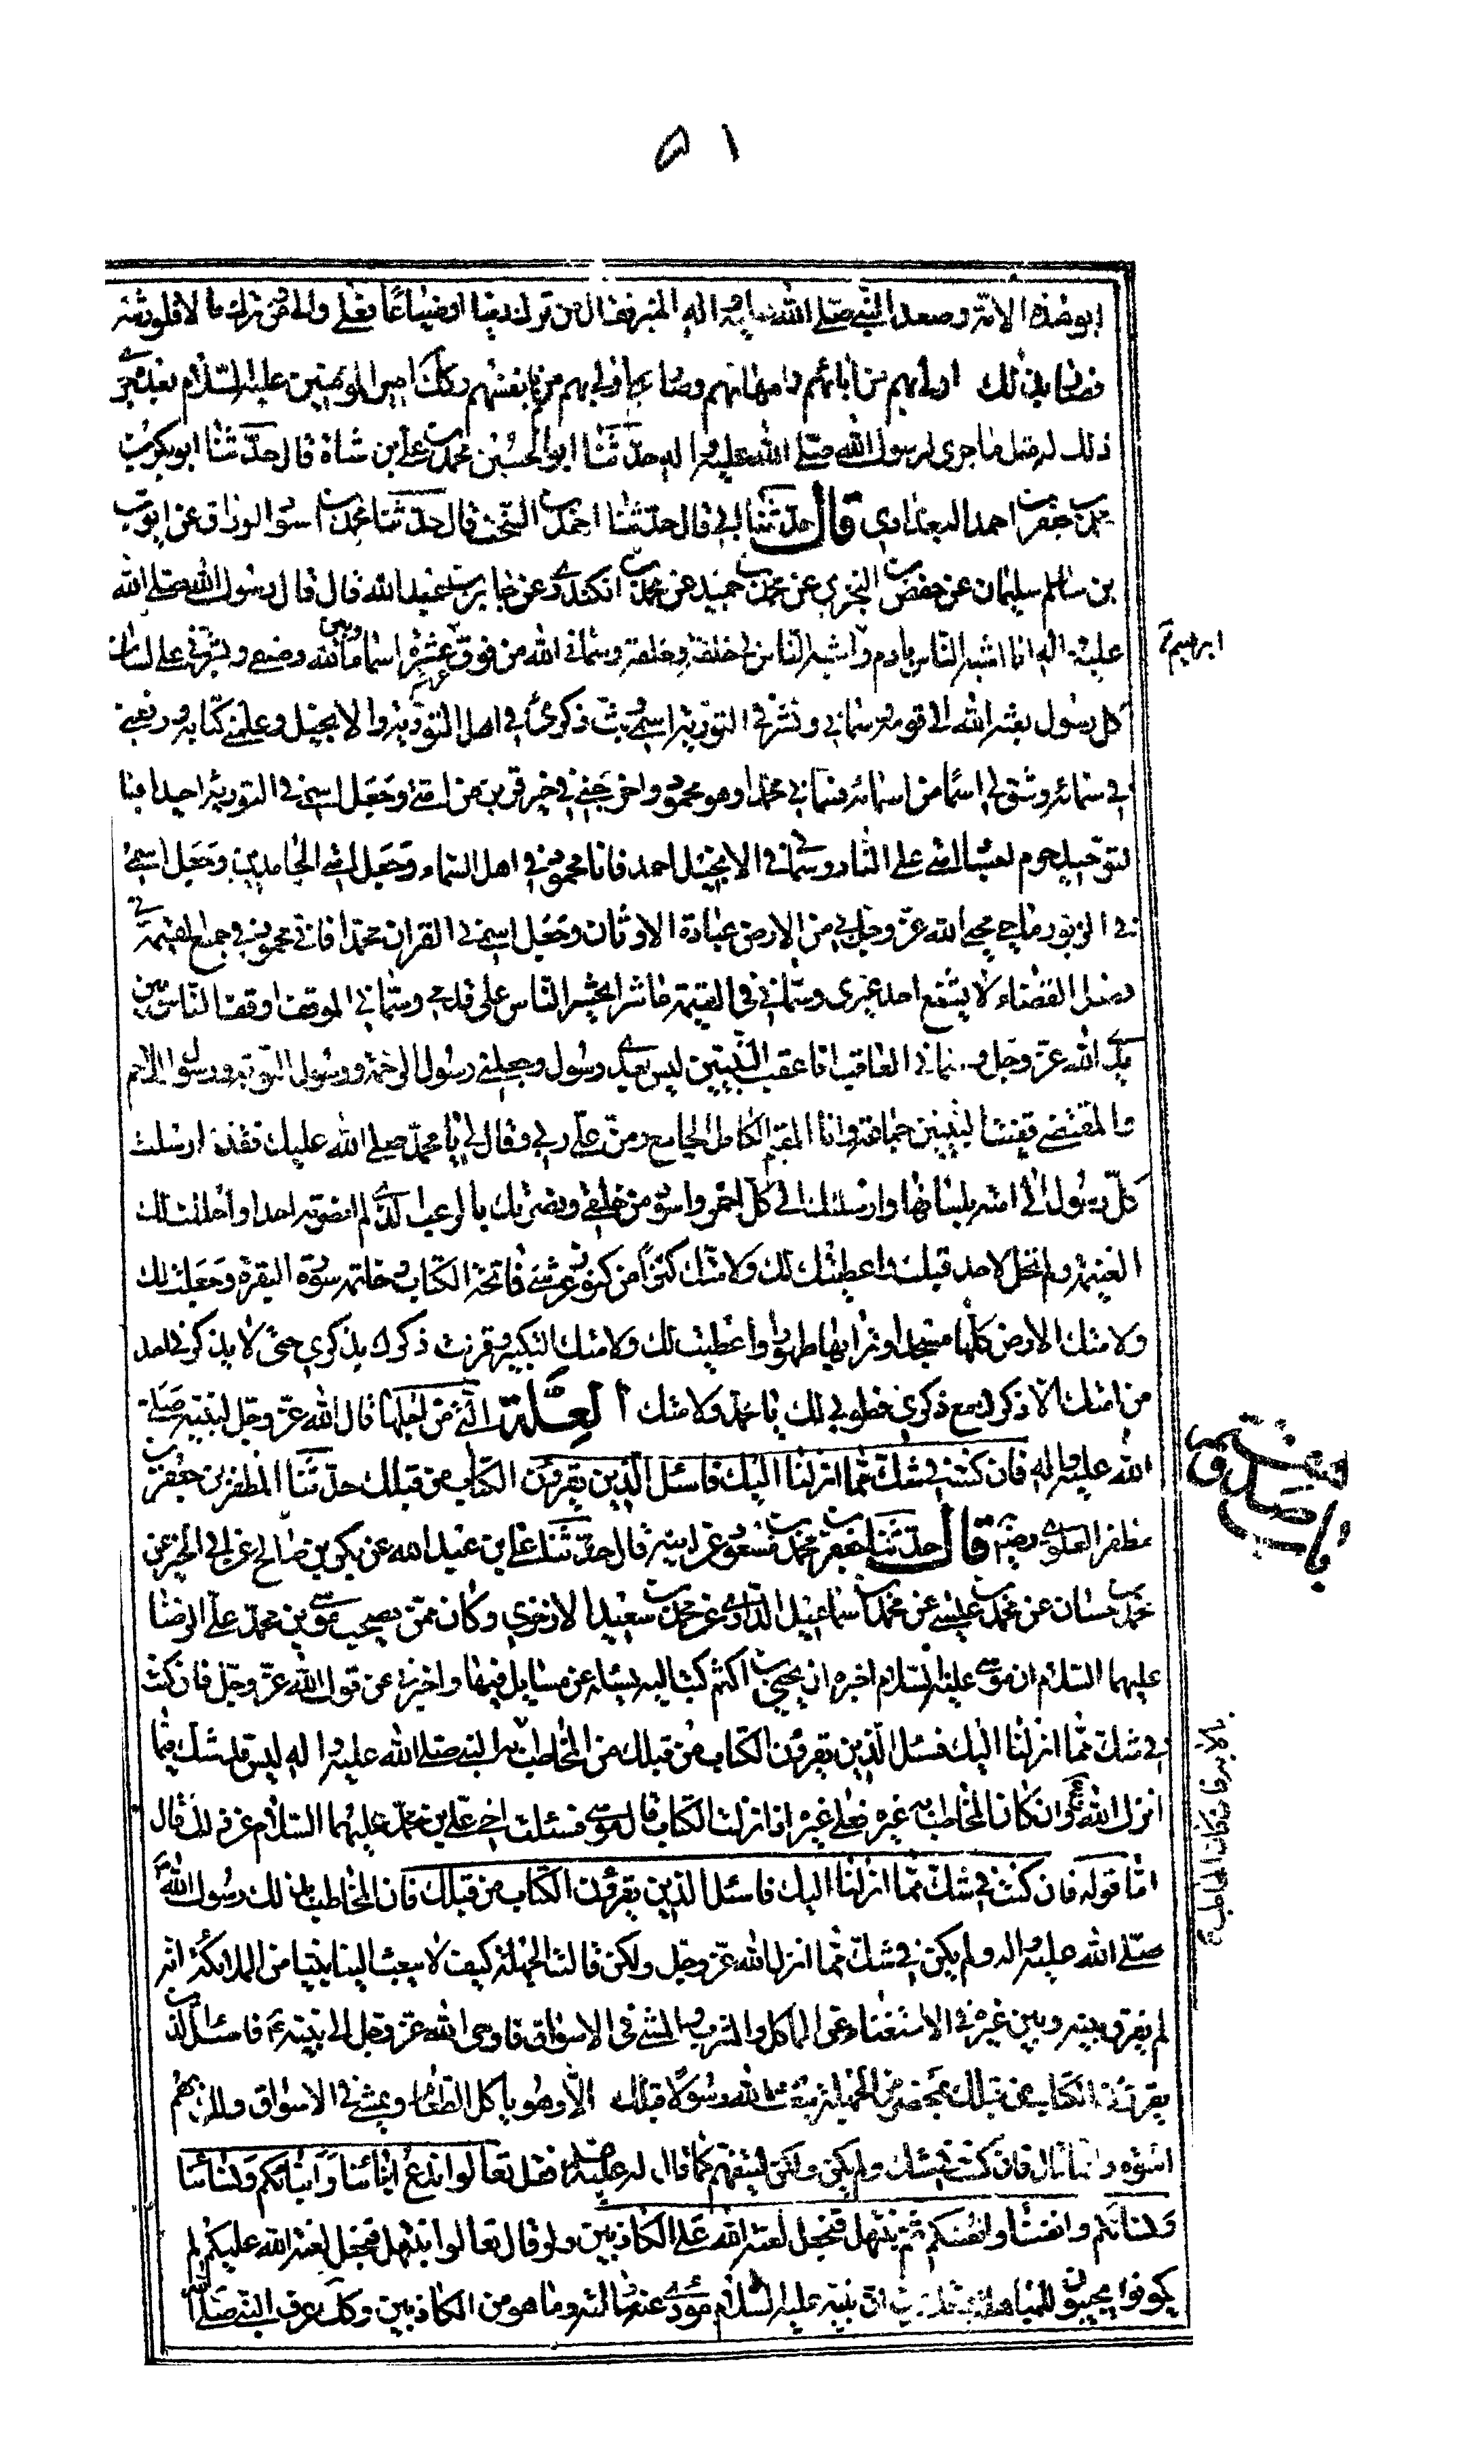 ٥١
ابو هذه الامة وصعد النبي صلى الله عليه واله المنبر فقال من ترك دينا او ضياعا فعلي والي ومن ترك مالا فلورثته
فصار بذلك اولى بهم من ابائهم وامهاتهم وصار اولى بهم منهم بانفسهم وكذلك امير المؤمنين عليه السلام بعده جرى
ذلك له مثل ما جرى لرسول الله صلى الله عليه واله حدثنا ابو الحسين محمد بن علي بن شاه قال حدثنا ابو بكر بن
محمد بن جعفر بن احمد البغدادي قال حدثنا ابي قال حدثنا احمد بن السخت قال حدثنا محمد بن اسود الوراق عن ايوب
بن سليمان عن حفص بن البختري عن محمد بن حميد عن محمد بن المنكدر عن جابر بن عبد الله قال قال رسول الله صلى الله
عليه واله انا اشبه الناس بادم و اشبه الناس بي خلقه وخلقه وسماني الله من فوق عرشه عشرة اسماء وبين الله وصفي وبشرني على لسان
ابرهيم
كل رسول بعثه الله الى قومه وسماني ونشر في التورية اسمي وبث ذكري في اهل التورية والانجيل وعلمني كتابه ورفعني
في سمائه وشق لي اسما من اسمائه فسماني محمدا وهو محمود واخرجني في خير قرن من امتي وجعل اسمي في التورية احيد
فبالتوحيد حرم اجساد امتي على النار وسماني في الانجيل احمد فانا محمود في اهل السماء وجعل امتي الحامدين وجعل اسمي
في الزبور ماحي محى الله عز وجل بي من الارض عبادة الاوثان وجعل اسمي في القران محمدا فانا محمود في جميع القيمة في
فصل القضاء لا يشفع احد غيري وسماني في القيمة حاشرا يحشر الناس على قدمي وسماني الموقف اوقف الناس بين
يدي الله عز وجل وسماني العاقب انا عقب النبيين ليس بعدي رسول وجعلني رسول الرحمة ورسول التوبة ورسول الملاحم
والمقتفي قفيت النبيين جماعة وانا القيم الكامل الجامع ومن علي ربي وقال لي يا محمد صلى الله عليك فقد ارسلت
كل رسول الى امته بلسانها وارسلتك الى كل احمر واسود من خلقي ونصرتك بالرعب الذي لم انصر به احدا واحللت لك
الغنيمة ولم تحل لاحد قبلك واعطيتك لك ولامتك كنزا من كنوز عرشي فاتحة الكتاب وخاتمة سورة البقرة وجعلت لك
ولامتك الارض كلها مسجدا وترابها طهورا واعطيت لك ولامتك التكبير وقرنت ذكرك بذكري حتى لا يذكرني احد
من امتك الا ذكرك مع ذكري فطوبى لك يا محمد ولامتك العلة التي من اجلها قال الله عز وجل لنبيه صلى
الله عليه واله فان كنت في شك مما انزلنا اليك فاسئل الذين يقرؤن الكتاب من قبلك حدثنا المظفر بن جعفر بن
مظفر العلوي رضه قال حدثنا جعفر بن محمد بن مسعود عن ابيه قال حدثنا علي بن عبد الله عن بكر بن صالح عن ابي الخير عن
محمد بن حسان عن محمد بن عيسى عن محمد بن اسماعيل الداري عن محمد بن سعيد الاذخري وكان ممن يصحب موسى بن محمد علي الرضا
عليهما السلام ان موسى عليه السلام اخبره ان يحيى بن اكثم كتب اليه يسئله عن مسايل فيها واخبرني عن قول الله عز وجل فان كنت
في شك مما انزلنا اليك فسئل الذين يقرؤن الكتاب من قبلك من المخاطب النبي صلى الله عليه واله ليس قد شك فيما
انزل الله وان كان المخاطب به غيره فعلى غيره اذا انزلت الكتاب قال موسى فسئلت اخي علي بن محمد عليهما السلام عن ذلك قال
اما قوله فان كنت في شك مما انزلنا اليك فاسئل الذين يقرؤن الكتاب من قبلك فان المخاطب بذلك رسول الله
صلى الله عليه واله ولم يكن في شك مما انزل الله عز وجل ولكن قالت الجهلة كيف لا يبعث الينا نبيا من الملائكة انه
لم يفرق بينه وبين غيره في الاستغناء عن الماكل والمشرب والمشي في الاسواق فاوحى الله عز وجل الى نبيه فاسئل الذين
يقرؤن الكتاب من قبلك بمحضر من الجهلة هل بعث الله رسولا قبلك الا وهو ياكل الطعام ويمشي في الاسواق ولك بهم
اسوة وانما قال فان كنت في شك ولم يكن ولكن ليتبعهم كما قال له فقل تعالوا ندع ابنائنا وابنائكم ونسائنا
ونسائكم وانفسنا وانفسكم ثم نبتهل فنجعل لعنة الله على الكاذبين ولو قال تعالوا نبتهل فنجعل لعنة الله عليكم لم
يكونوا يجيبون للمباهلة ان نبيه عليه السلام مؤدي عنه رسالته وما هو من الكاذبين وكذلك عرف النبي صلى الله